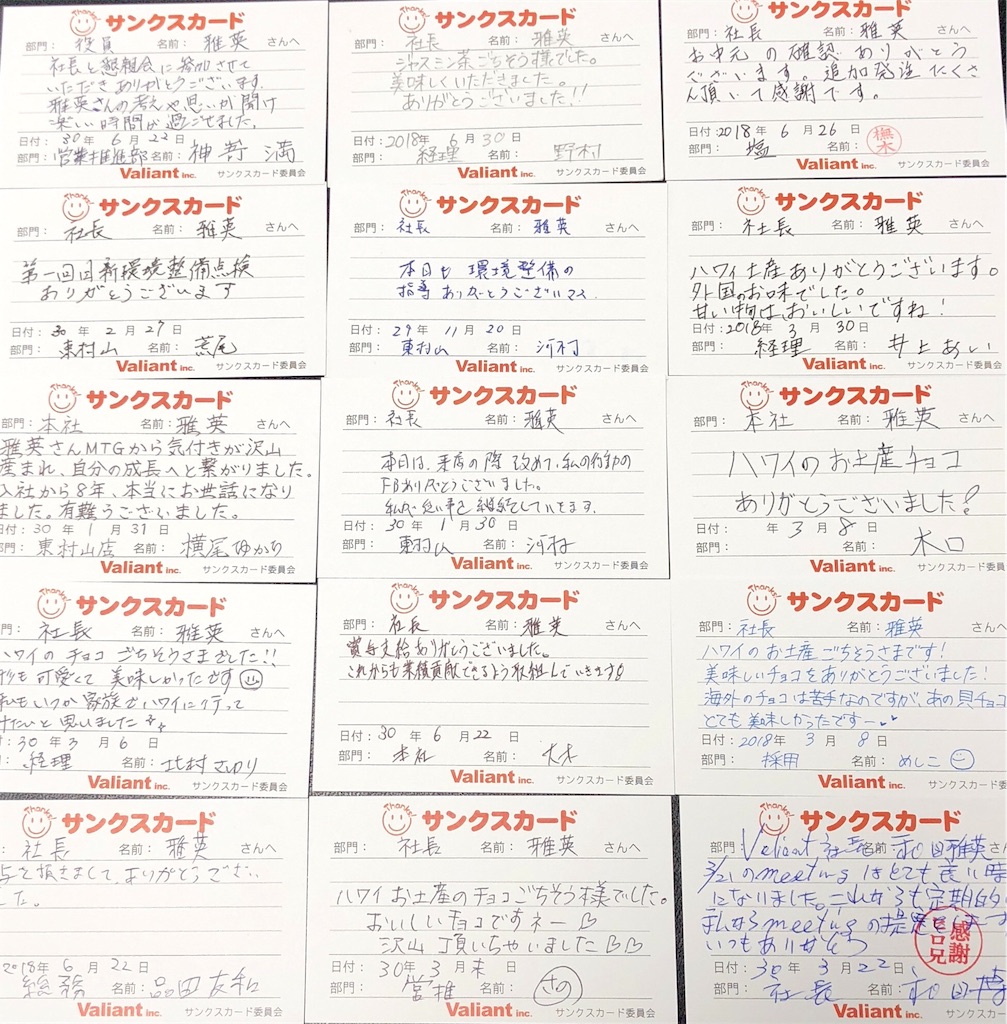 Thanks!
サンクスカード
部門： 役員 名前： 雅英 さんへ
社長と懇親会に参加させて
いただきありがとうございます。
雅英さんの考えや思いが聞け
楽しい時間が過ごせました。
日付： 30 年 6 月 22 日
部門： 営業推進部 名前： 神嵜 満
Valiant inc. サンクスカード委員会
Thanks!
サンクスカード
部門： 社長 名前： 雅英 さんへ
ジャスミン茶ごちそう様でした。
美味しくいただきました。
ありがとうございました!!
日付： 2018年 6 月 30 日
部門： 経理 名前： 野村
Valiant inc. サンクスカード委員会
サンクスカード
部門： 社長 名前： 雅英 さんへ
お中元の確認ありがとう
ございます。追加発注たくさ
ん頂いて感謝です。
日付： 2018 年 6 月 26 日
部門： 塩 名前：
Valiant inc. サンクスカード委員会
Thanks!
サンクスカード
部門： 社長 名前： 雅英 さんへ
第一回目新環境整備点検
ありがとうございます
日付： 30 年 2 月 27 日
部門： 東村山 名前： 荒尾
Valiant inc. サンクスカード委員会
Thanks!
サンクスカード
部門： 社長 名前： 雅英 さんへ
本日も 環境整備の
指導 ありがとうございます.
日付： 29 年 11 月 20 日
部門： 東村山 名前： 河村
Valiant inc. サンクスカード委員会
Thanks!
サンクスカード
部門： 社長 名前： 雅英 さんへ
ハワイ土産ありがとうございます。
外国のお味でした。
甘い物は、おいしいですね！
日付： 2018年 3 月 30 日
部門： 経理 名前： 井上あい
Valiant inc. サンクスカード委員会
Thanks!
サンクスカード
部門： 本社 名前： 雅英 さんへ
雅英さんMTGから気付きが沢山
産まれ、自分の成長へと繋がりました。
入社から8年、本当にお世話になり
ました。有難うございました。
日付： 30 年 1 月 31 日
部門： 東村山店 名前： 横尾ゆかり
Valiant inc. サンクスカード委員会
Thanks!
サンクスカード
部門： 社長 名前： 雅英 さんへ
本日は、来店の際 改めて、私の行動の
FBありがとうございました。
日付： 30 年 1 月 30 日
部門： 東村山 名前： 河村
Valiant inc. サンクスカード委員会
Thanks!
サンクスカード
部門： 本社 名前： 雅英 さんへ
ハワイのお土産チョコ
ありがとうございました！
日付： 年 3 月 8 日
部門： 名前： 木口
Valiant inc. サンクスカード委員会
Thanks!
サンクスカード
部門： 社長 名前： 雅英 さんへ
ハワイの チョコ ごちそうさまでした!!
形も可愛くて 美味しかったです
私もいつか家族でハワイに行って
みたいと思いました
30 年 3 月 6 日
部門： 経理 名前： 北村さゆり
Valiant inc. サンクスカード委員会
Thanks!
サンクスカード
部門： 社長 名前： 雅英 さんへ
賞与支給ありがとうございました。
これからも業績貢献できるよう取組していきます!
日付： 30 年 6 月 22 日
部門： 本社 名前：
Valiant inc. サンクスカード委員会
Thanks!
サンクスカード
部門： 社長 名前： 雅英 さんへ
ハワイのお土産ごちそうさまです！
美味しいチョコをありがとうございました！
海外のチョコは苦手なのですが、あの貝チョコ
とても美味しかったですー
日付： 2018 年 3 月 8 日
部門： 採用 名前： めしこ
Valiant inc. サンクスカード委員会
Thanks!
サンクスカード
： 社長 名前： 雅英 さんへ
与を頂きまして、ありがとうござい
した。
2018 年 6 月 22 日
： 総務 名前： 品田友和
Valiant inc. サンクスカード委員会
Thanks!
サンクスカード
部門： 社長 名前： 雅英 さんへ
ハワイお土産のチョコごちそう様でした。
おいしいチョコですネー
沢山 頂いちゃいました
日付： 30年 3 月 末 日
部門： 営推 名前： さの
Valiant inc. サンクスカード委員会
Thanks!
サンクスカード
部門： Valiant 社長 名前： 和田雅英さん
3/21のmeetingはとても良い時
になりました。これからも定期的
meetingの提案
いつもありがとう
感謝
日付： 30 年 3 月 22 日
部門： 社長 名前： 和田
Valiant inc. サンクスカード委員会